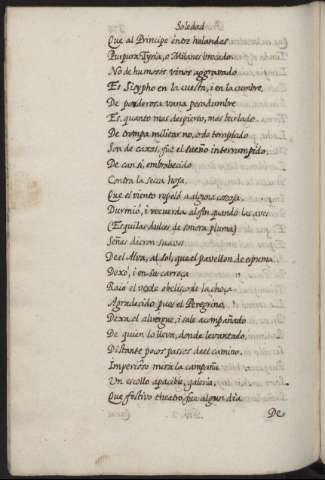 Soledad
Que al Principe entre holandas
Purpura Tyria, o Milanes brocado.
No de humosos vinos agravado
Es Sisypho en la cuesta, i en la cumbre
De ponderosa vana pesadumbre
Es, quanto mas despierto, mas burlado.
De trompa militar no, o de templado
Son de caxas, fue el sueño interrumpido,
De can si, embravecido
Contra la seca hoja,
Que el viento repeló a alguna coscoja.
Durmió, i recuerda alfin quando las aves
(Esquilas dulces de sonora pluma)
Señas dieron suaves
Del Alva, al Sol, que el pavellon de espuma
Dexò, i en su carroça
Raiò el verde obelisco de la choça.
Agradecido pues el Peregrino,
Dexa el alvergue, i sale acompañado
De quien lo lleva, donde levantado,
Distante pocos passos del camino,
Imperioso mira la campaña
Un escollo apacible, galeria,
Que festivo theatro fue algun dia
De